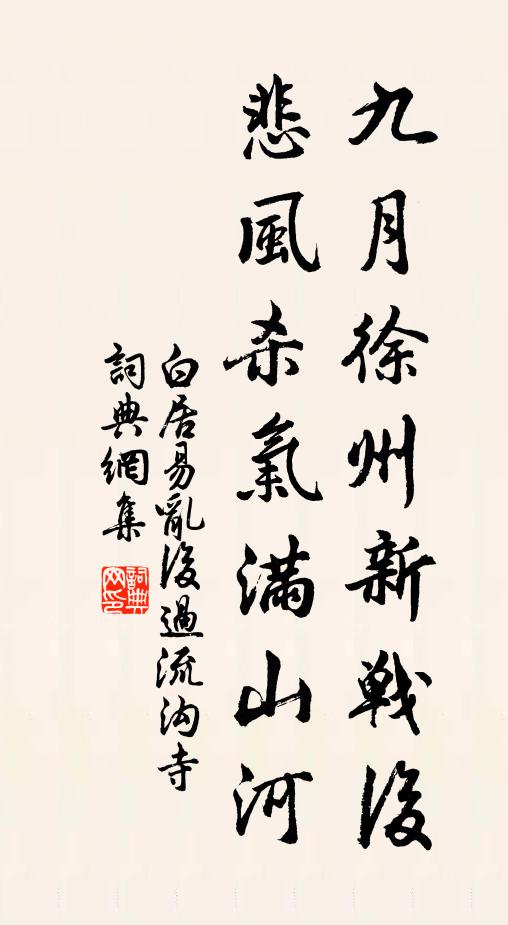 九月徐州新戦後
悲風杀氣滿山河
白居易亂後過流沟寺
詞典網集
詞典网印